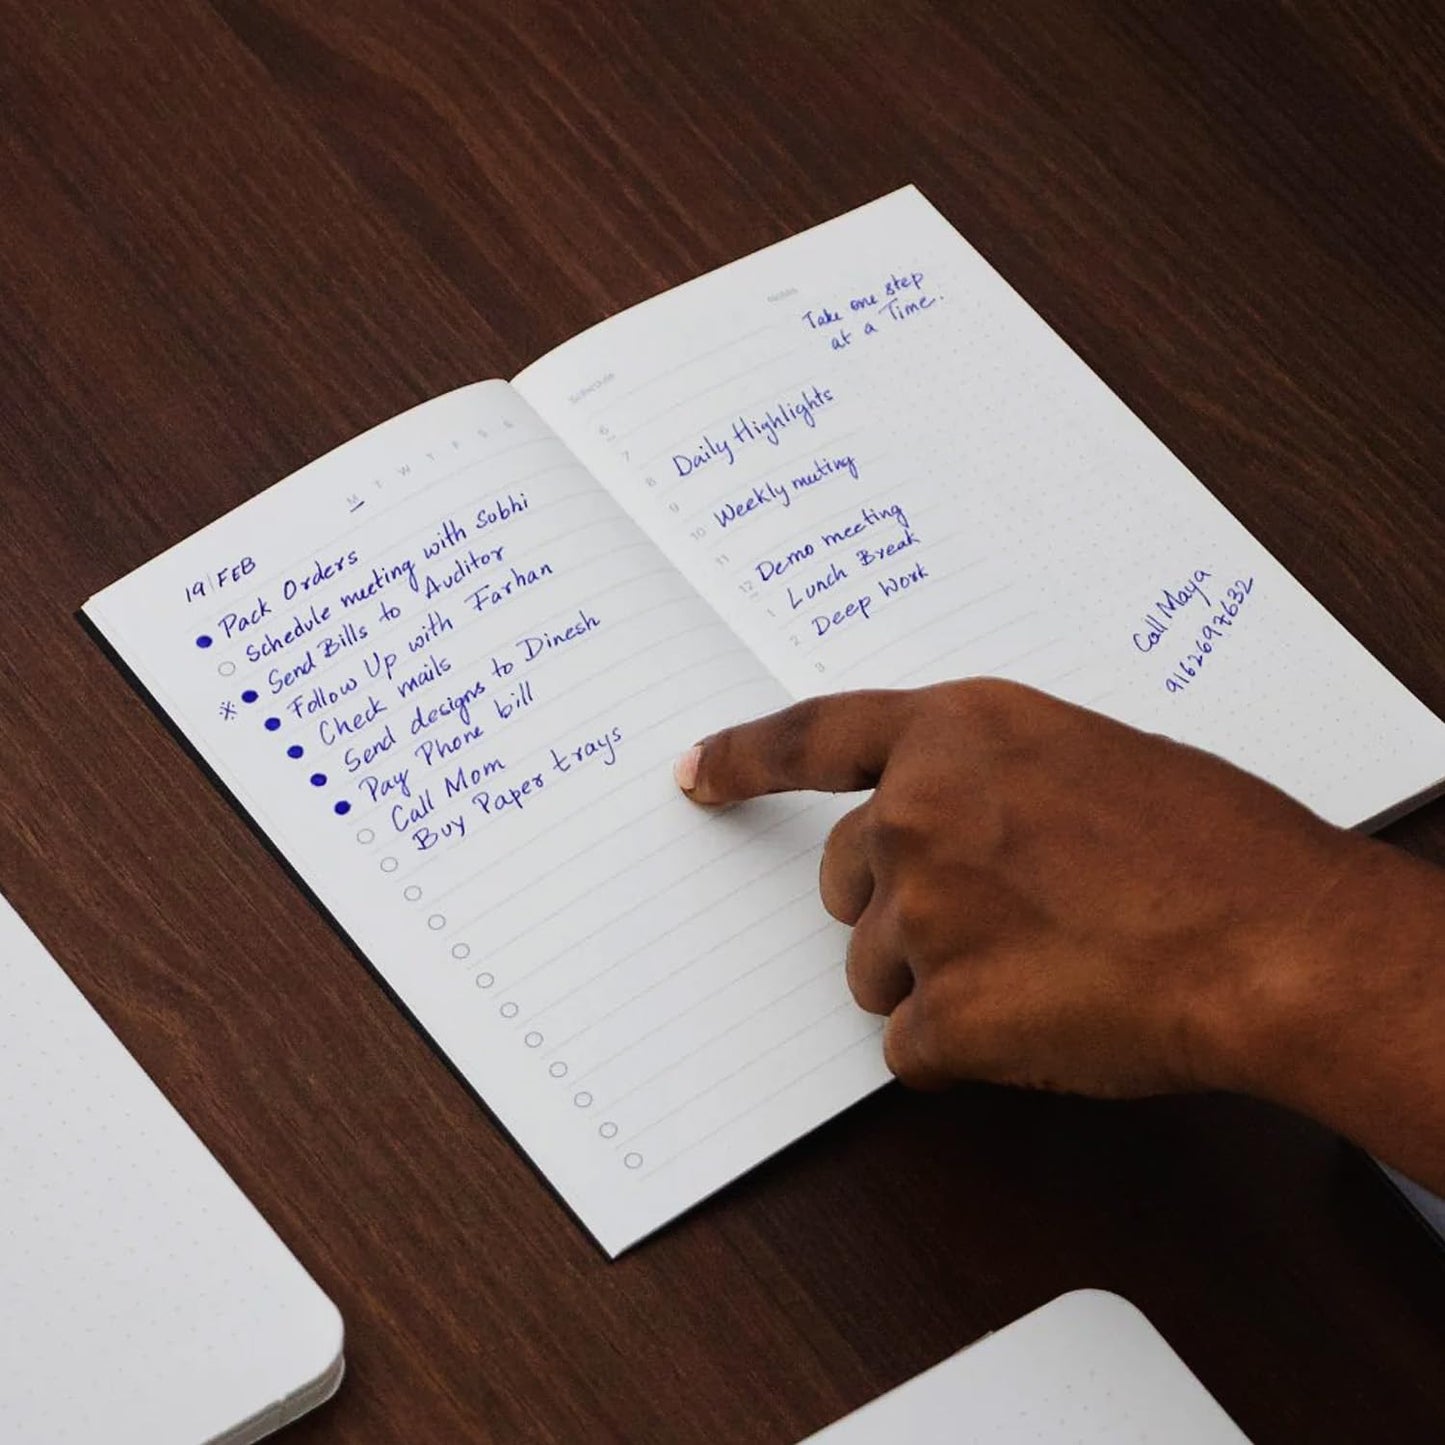 M T W T F S S
19|FEB
Pack Orders
Schedule meeting with Sobhi
Send Bills to Auditor
Follow Up with Farhan
Check mails
Send designs to Dinesh
Pay Phone bill
Call Mom
Buy Paper trays
Schedule
Notes
Take one step
at a Time.
6
7
8 Daily Highlights
9
10 Weekly meeting
11
12 Demo meeting
1 Lunch Break
2 Deep Work
3
Call Maya
9162697632